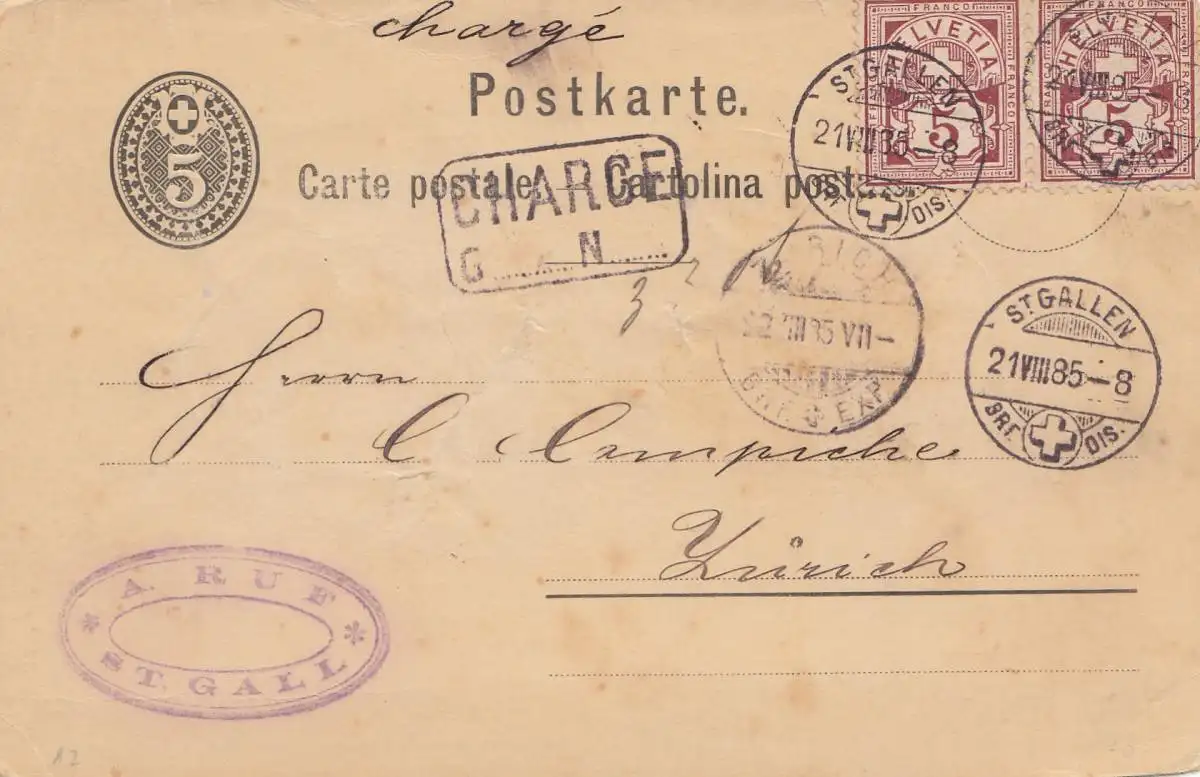 chargé
FRANCO FRANCO
HELVETIA HELVETIA
FRANCO FRANCO
5 5
ST. GALLEN
21 VIII 85 – 8
BRF. DIS.
21 VIII 8
BRF.
Postkarte.
5
Carte postale. – Cartolina post
CHARGE
G. N.
22 VIII 85 VII –
BRF. EXP.
ST. GALLEN
21 VIII 85 – 8
BRF. DIS.
Herrn
C Campiche
Zürich
A. RUE
* *
ST. GALL